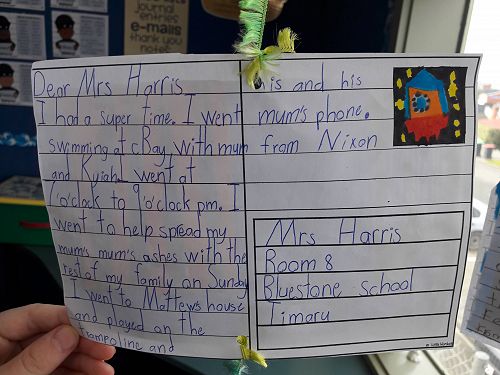 Journal
entries
e-mails
thank you
notes
Dear Mrs Harris
I had a super time. I went
swimming at cBay with mum
and Kyiah went at
7o'clock to 9o'clock pm. I
went to help spread my
mum's mum's ashes with the
rest of my family on Sunday
I went to Mattew's house
and played on the
trampoline and
his and his
mum's phone.
from Nixon
Mrs Harris
Room 8
Bluestone school
Timaru